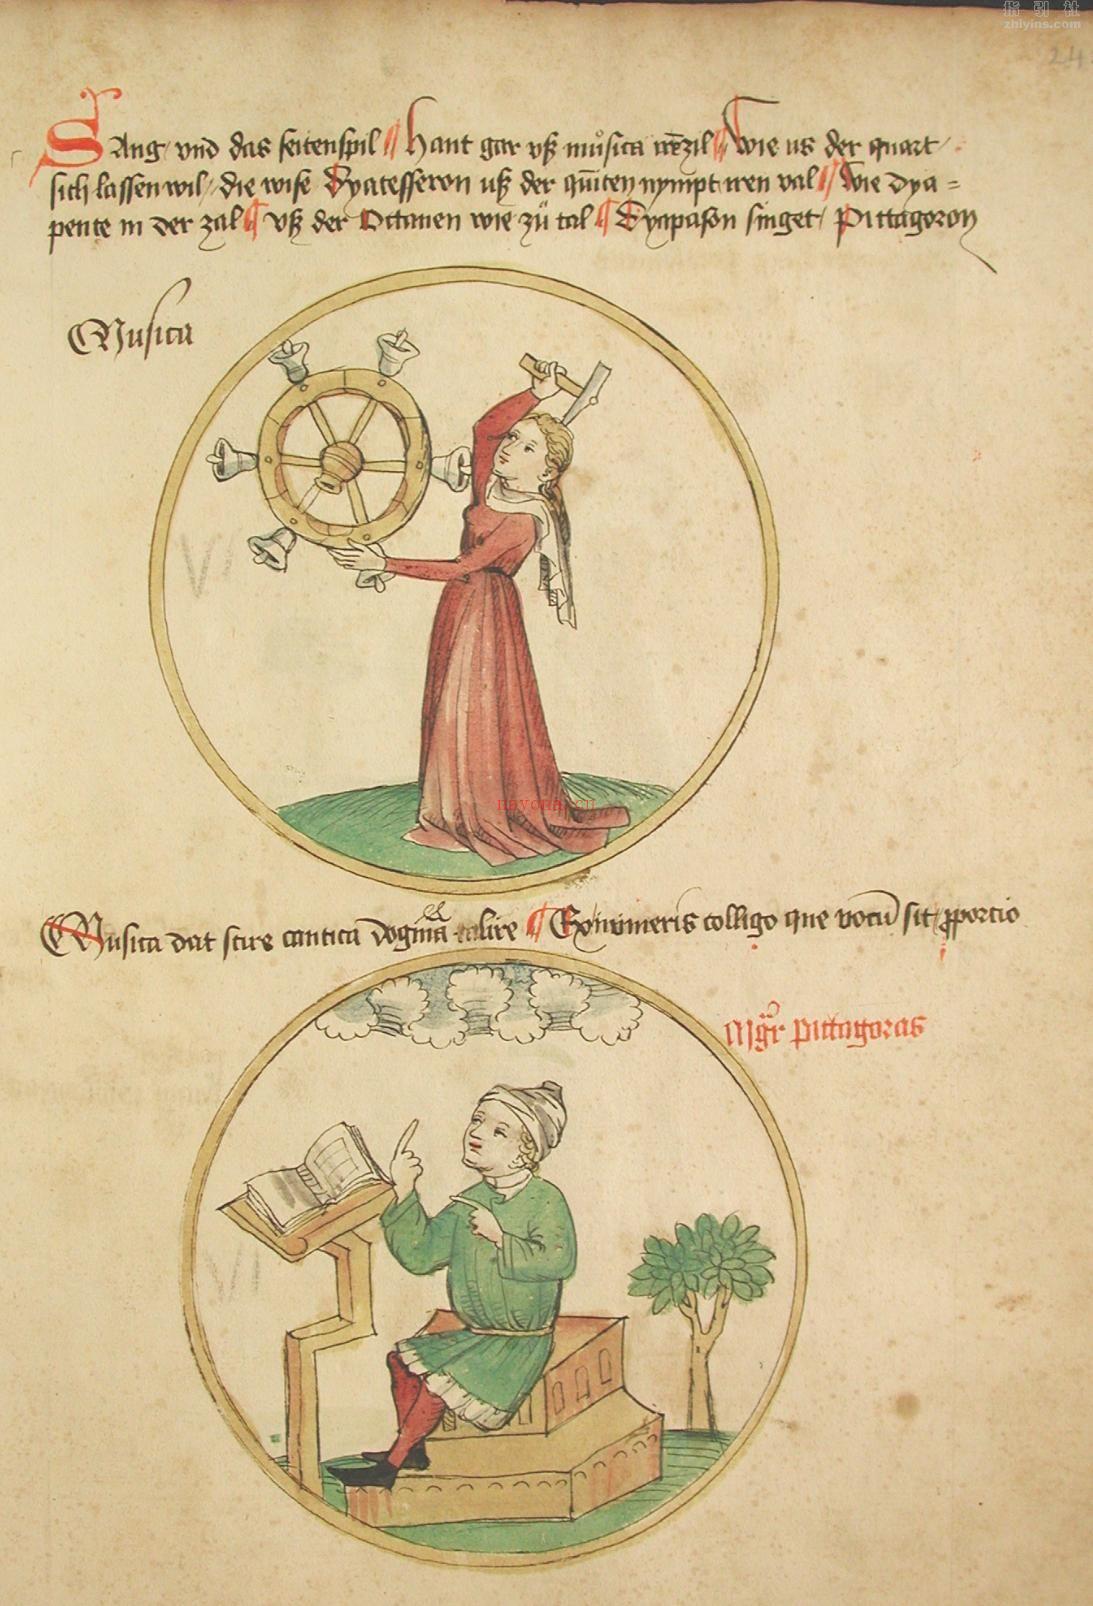 指引社
zhiyins.com
24
SAng vnd das seitenspil ¶ Hant gar vß můsica zil ¶ Wie us der quart
sich lassen wil / die wise Dyatesseron uß der quīten nympt iren val ¶ Wie dya=
pente in der zal ¶ Vß der Octauen wie zů tal ¶ Dyapason singet / Pittagoron
Musica
VI
nayona.cn
Musica dat scire cantica dogmā ¶ Ex numeris colligo que vocū sit proporcio
Mgr pittagoras
VI